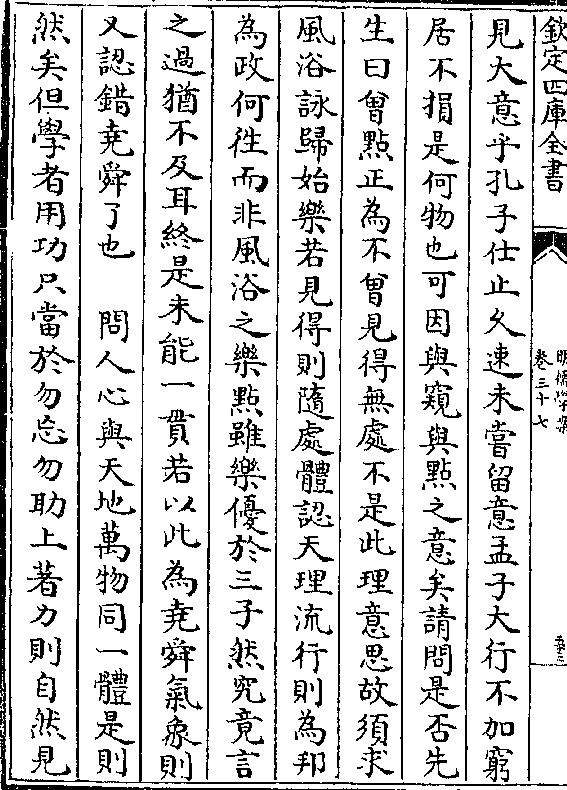 欽定四庫全書
明儒學案
卷三十七
見大意乎孔子仕止久速未嘗留意孟子大行不加窮
居不損是何物也可因與窺與點之意矣請問是否先
生曰曾點正為不曾見得無處不是此理意思故須求
風浴詠歸始樂若見得則隨處體認天理流行則為邦
為政何徃而非風浴之樂點雖樂優於三子然究竟言
之過猶不及耳終是未能一貫若以此為堯舜氣象則
又認錯堯舜了也 問人心與天地萬物同一體是則
然矣但學者用功只當於勿忘勿助上著力則自然見